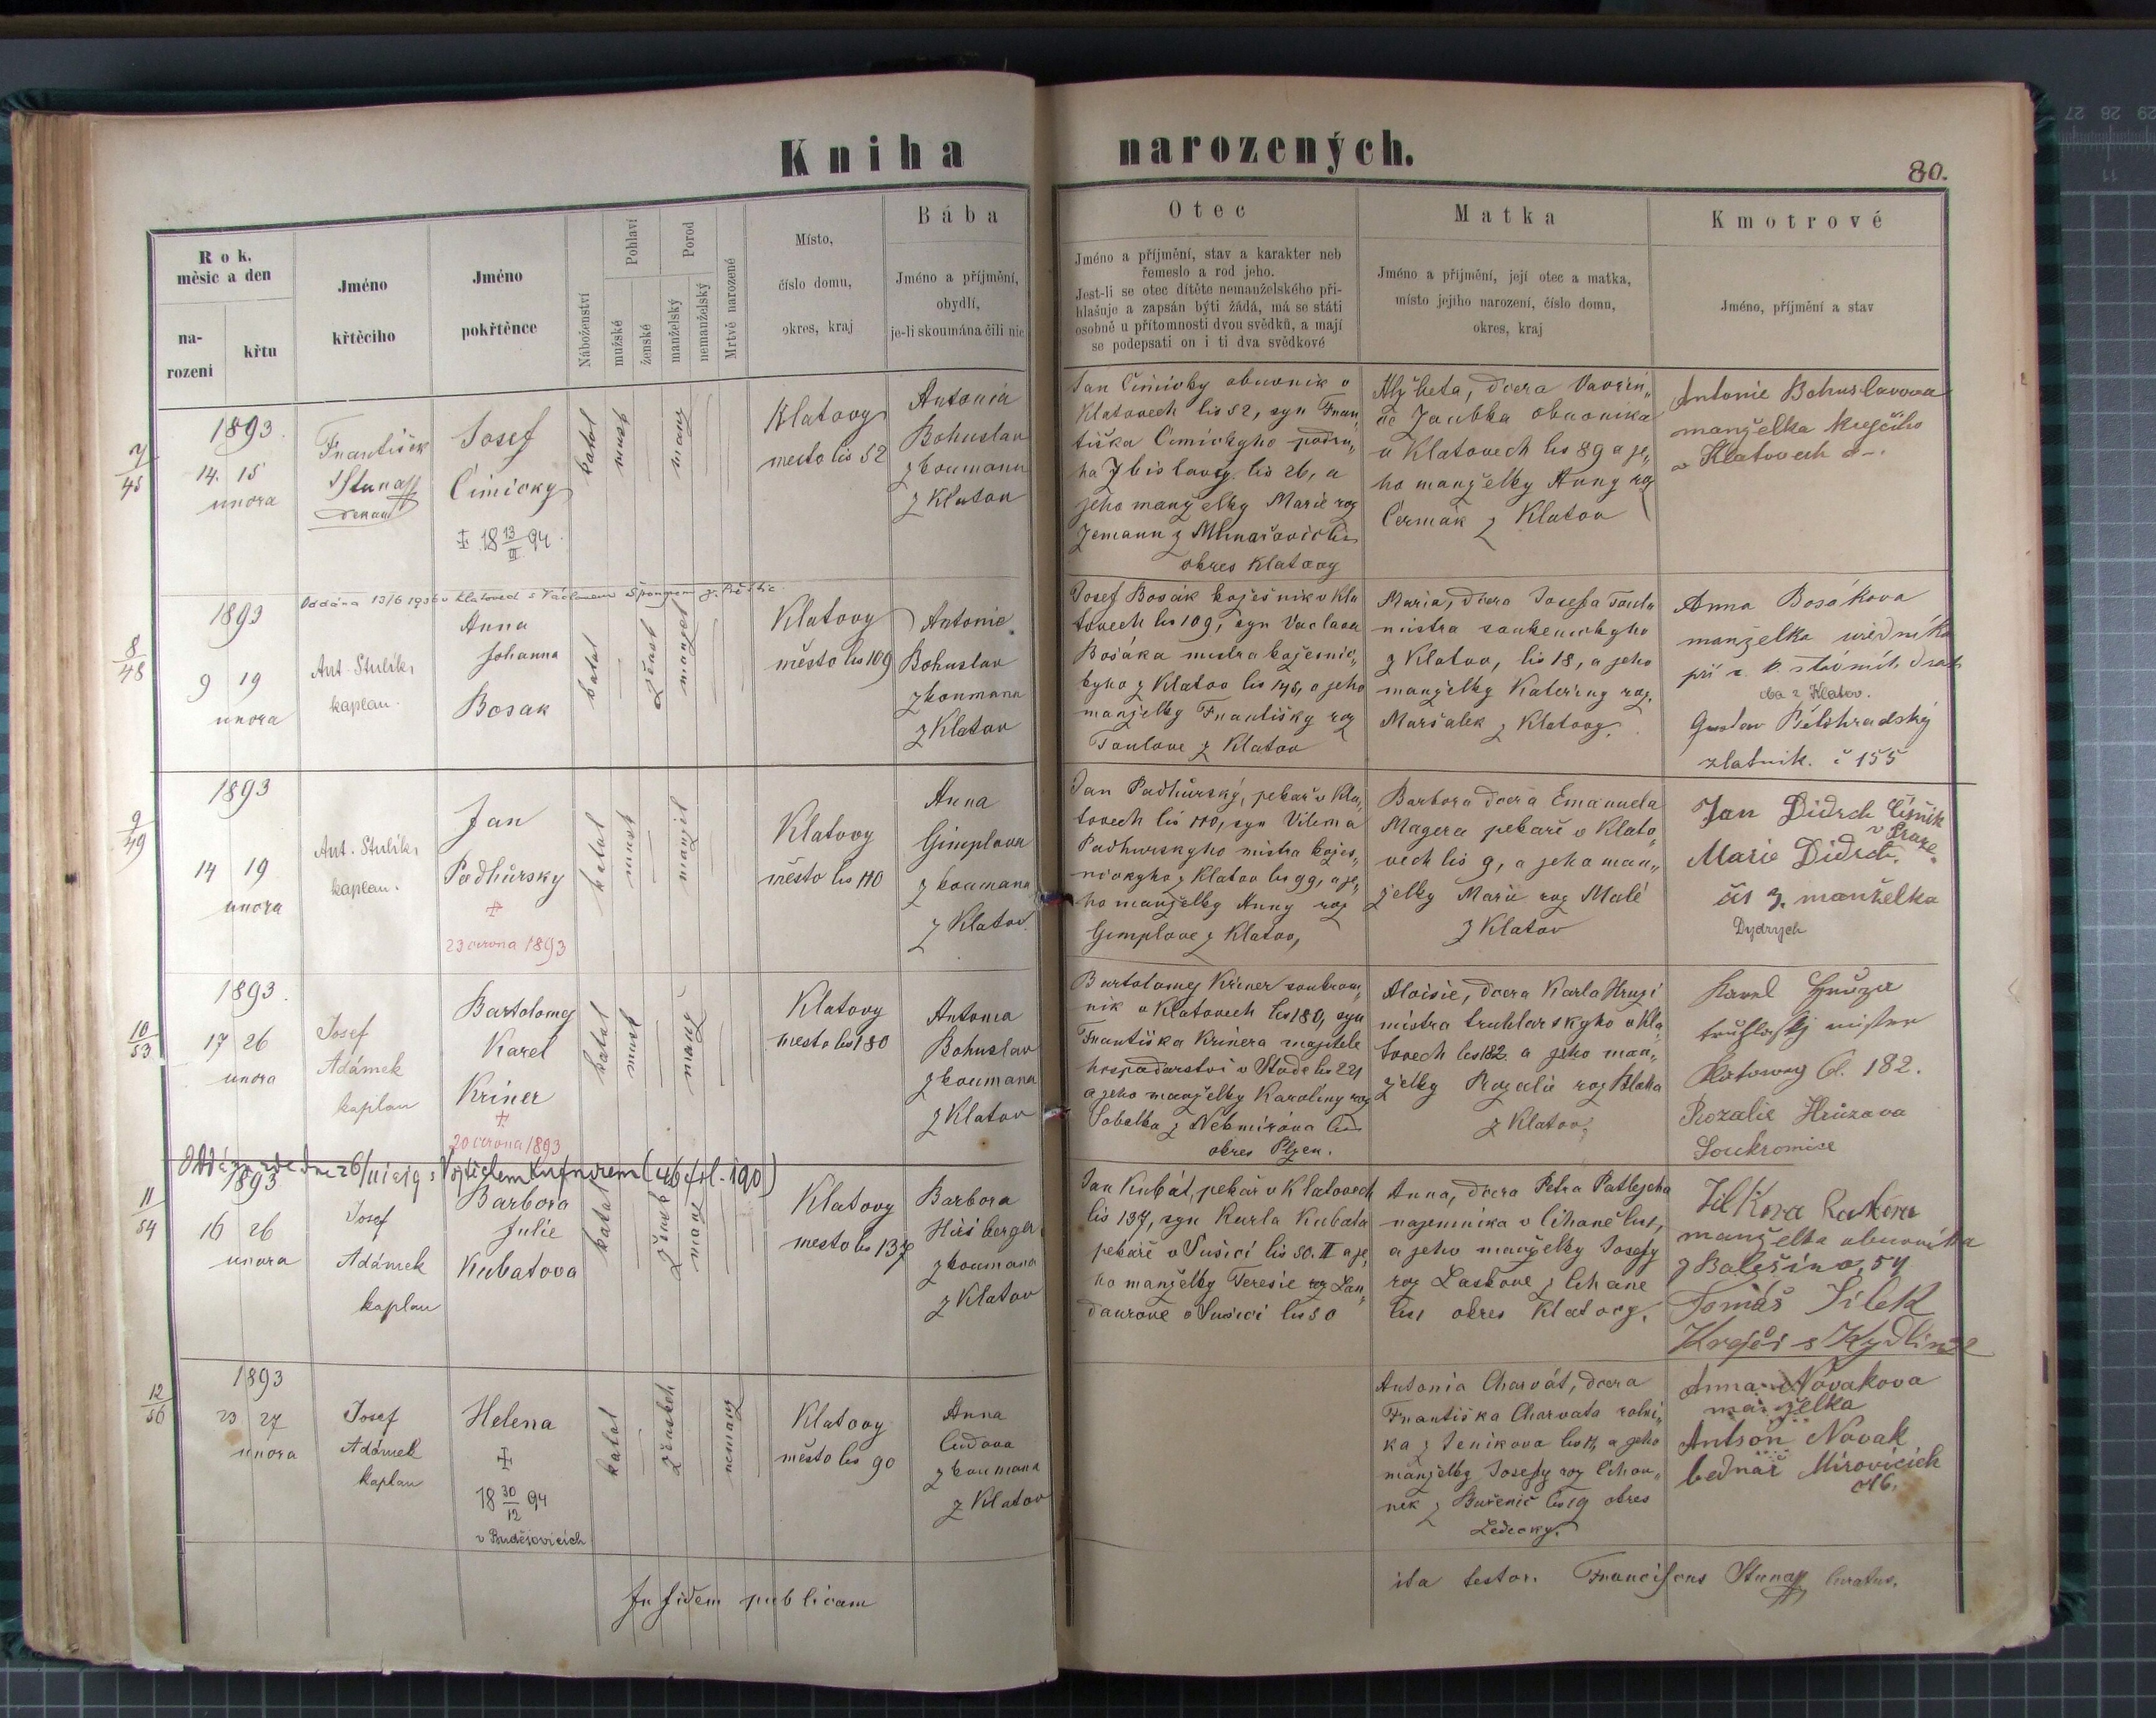 Kniha narozených.
80.
Rok, měsíc a den
narození
křtu
Jméno křtěcího
Jméno pokřtěnce
Náboženství
Pohlaví
mužské
ženské
Porod
manželský
nemanželský
Mrtvě narozené
Místo,
číslo domu,
okres, kraj
Bába
Jméno a příjmění,
obydlí,
je-li skoumána čili nic
Otec
Jméno a příjmění, stav a karakter neb
řemeslo a rod jeho.
Jest-li se otec dítěte nemanželského při-
hlašuje a zapsán býti žádá, má se státi
osobně u přítomnosti dvou svědků, a mají
se podepsati on i ti dva svědkové
Matka
Jméno a příjmění, její otec a matka,
místo jejího narození, číslo domu,
okres, kraj
Kmotrové
Jméno, příjmění a stav
7/45
1893
14. 15
unora
František
Josef
Čimický
13/III 94
katol
musk
manz
Klatovy
mesto čis 52
Antonia
Bohuslav
zkoumana
z Klatov
Jan Čimický obuvnik v
Klatovech čis 52, syn Fran„
tiška Čimickyho
čis 26, a
jeho manželky Marie roz
okres Klatovy
Alžbeta, dcera Vavřin„
obuvnika
v Klatovech čis 89 a je„
ho manželky Anny roz
Čermák z Klatov
Antonie Bohuslavova
manželka krejčiho
v Klatovech
8/48
Oddána 13/6 1936 v Klatovech s Václavem
1893
9 19
unora
Ant. Stulík,
kaplan.
Anna
Johanna
Bosak
katol
žensk
manžel
Klatovy
město čis 109
Antonie
Bohuslav
zkoumana
z Klatov
Josef Bosák koješnik v Kla
tovech čis 109, syn Vaclava
Bosáka mistra koješnic„
kyho z Klatov čis 145, a jeho
manželky Františky roz
Taulove z Klatov
Maria, dcera Josefa
mistra soukenickyho
z Klatov, čis 18, a jeho
manželky Kateřiny roz.
Maršalek z Klatovy.
Anna Bosákova
manželka uředníka
při
z Klatov.
Gustav Bělohradský
zlatnik. č 155
9/49
1893
14 19
unora
Ant. Stulík,
kaplan.
Jan
Podhůrsky
23 června 1893
katol
musk
manžel
Klatovy
město čis 110
Anna
Gimplova
zkoumana
z Klatov
Jan Podhůrský, pekař v Kla„
tovech čis 110, syn Vilema
Podhurskyho mistra koješ„
nickyho z Klatov čis 99, a je„
ho manželky Anny roz
Gimplove z Klatov,
Barbora dcera Emanuela
Magera pekaře v Klato„
vech čis 9, a jeho man„
želky Marie roz Malé
z Klatov
Jan Didrch číšník
v Praze.
Marie Didrch,
manželka
Dydrych
10/53
1893.
17 26
unora
Josef
Adámek
kaplan
Bartolomej
Karel
Kriner
20 června 1893
katol
musk
manž
Klatovy
mesto čis 180
Antonia
Bohuslav
zkoumana
z Klatov
Bartolomej Kriner soukrom„
nik v Klatovech čis 180, syn
Františka Krinera majitele
hospodarstvi v Stodě čis 221
a jeho manželky Karoliny roz
okres Plzen.
Aloisie, dcera Karla Hruzi
mistra truhlarskyho v Kla„
tovech čis 182 a jeho man„
želky Rozalie roz Blaha
z Klatov,
Karel Hruza
Klatovy čl. 182.
Rozalie Hrůzova
Soukromice
11/54
1893
16 26
unora
Josef
Adámek
kaplan
Barbora
Julie
Kubatova
katol
žensk
manž
Klatovy
mesto čis 137
Barbora
zkoumana
z Klatov
Jan Kubát, pekař v Klatovech
čis 137, syn Karla Kubata
pekaře v Sušici čis 50. II a je„
ho manželky Teresie roz Lan„
daurove v Sušici čis 50
Anna, dcera Petra
najemnika v čis 1,
a jeho manželky Josefy
roz Laskove z
čis 1 okres Klatovy.
manželka obuvníka
54
Tomáš Silek
Krejčí
12/56
1893
23 27
unora
Josef
Adámek
kaplan
Helena
18 30/12 94
v Budějovicích
katol
ženskeh
nemanz
Klatovy
město čis 90
Anna
zkoumana
z Klatov
Antonia Charvát, dcera
Františka Charvata rolni„
ka z Jenikova čis 14, a jeho
manželky Josefy roz
nek z čis 19 okres
Ledecky.
Anna Novakova
manželka
Antson Novak
bednář Mirovicích
č 16.
In fidem publicam
ita testor. Franciscus curatus.